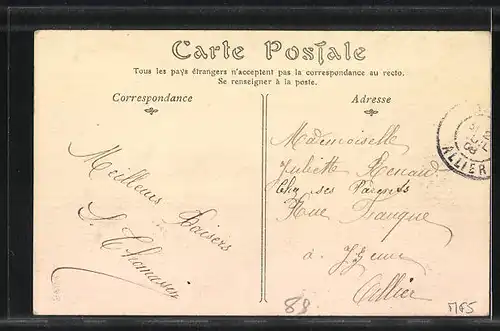 Carte Postale
Tous les pays étrangers n'acceptent pas la correspondance au recto.
Se renseigner à la poste.
Correspondance
Adresse
Meilleurs Baisers
Mademoiselle
Juliette Renaud
Chez ses Parents
Rue
à Yzeure
Allier
ALLIER
88